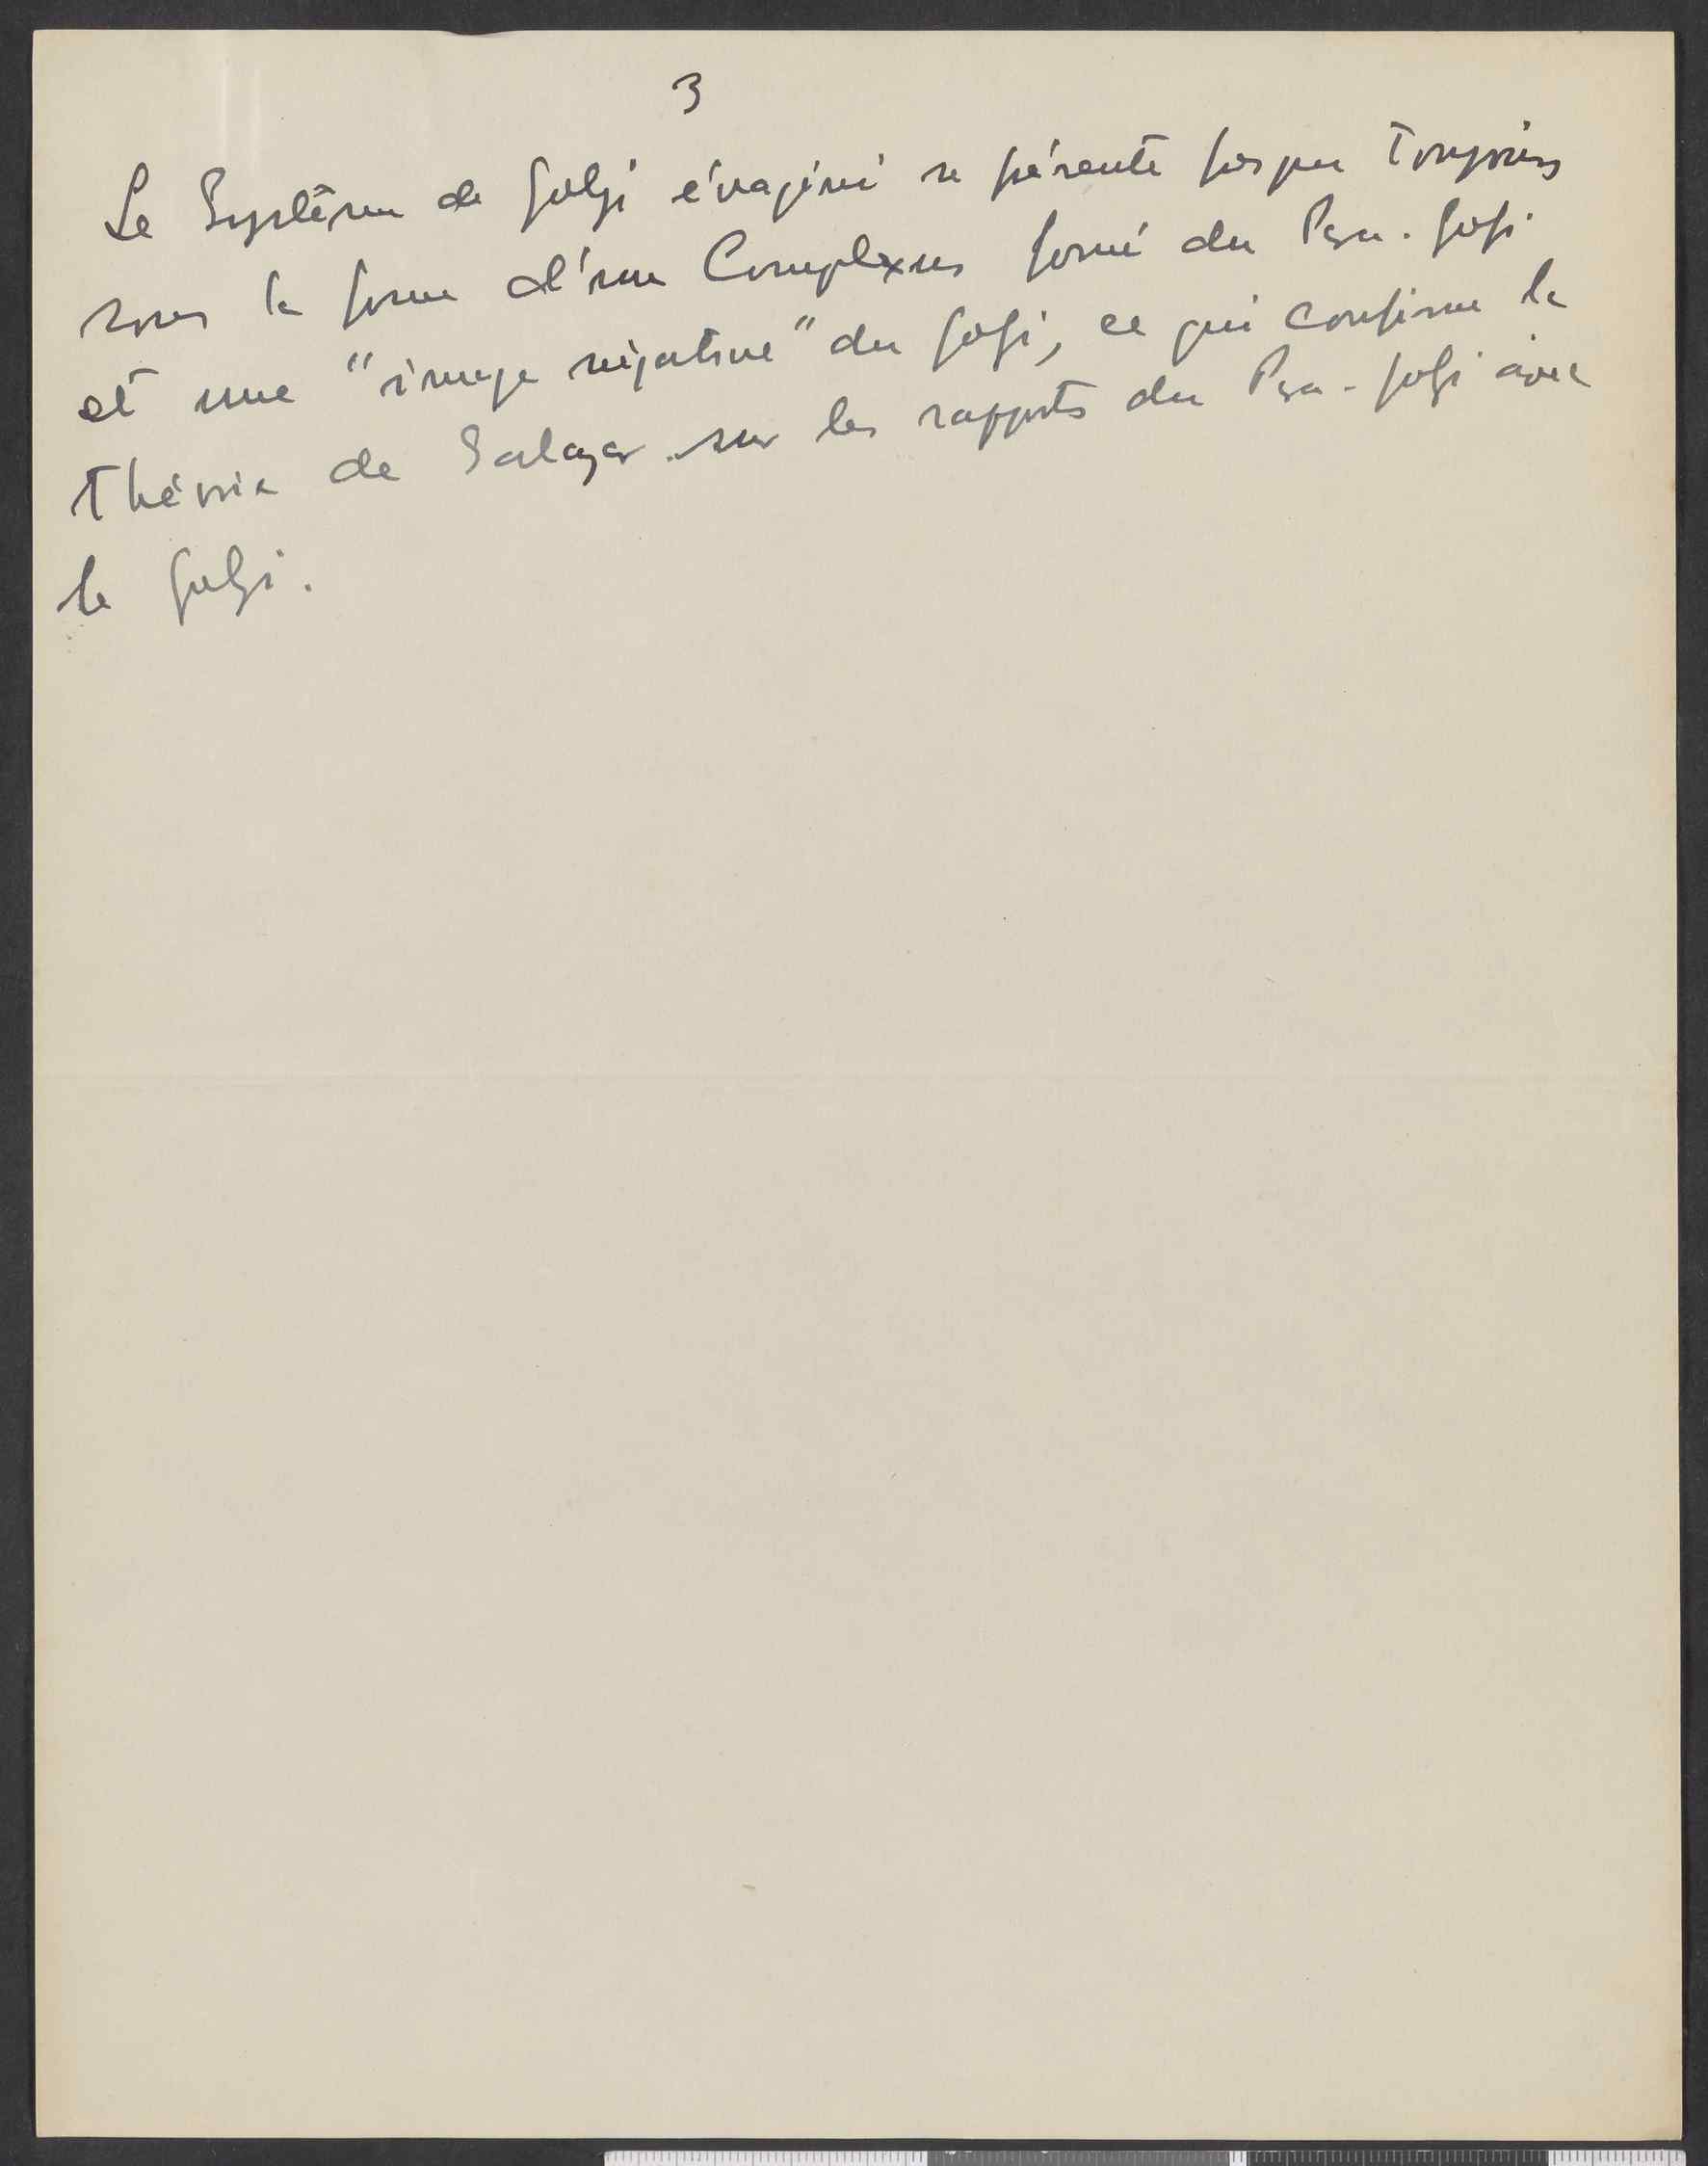 3
Le Système de Golgi évaginé se présente presque toujours
sous la forme d'un Complexus formé du Para-Golgi
et une "image négative" du Golgi, ce qui confirme la
théorie de Salazar sur les rapports du Para-Golgi avec
le Golgi.